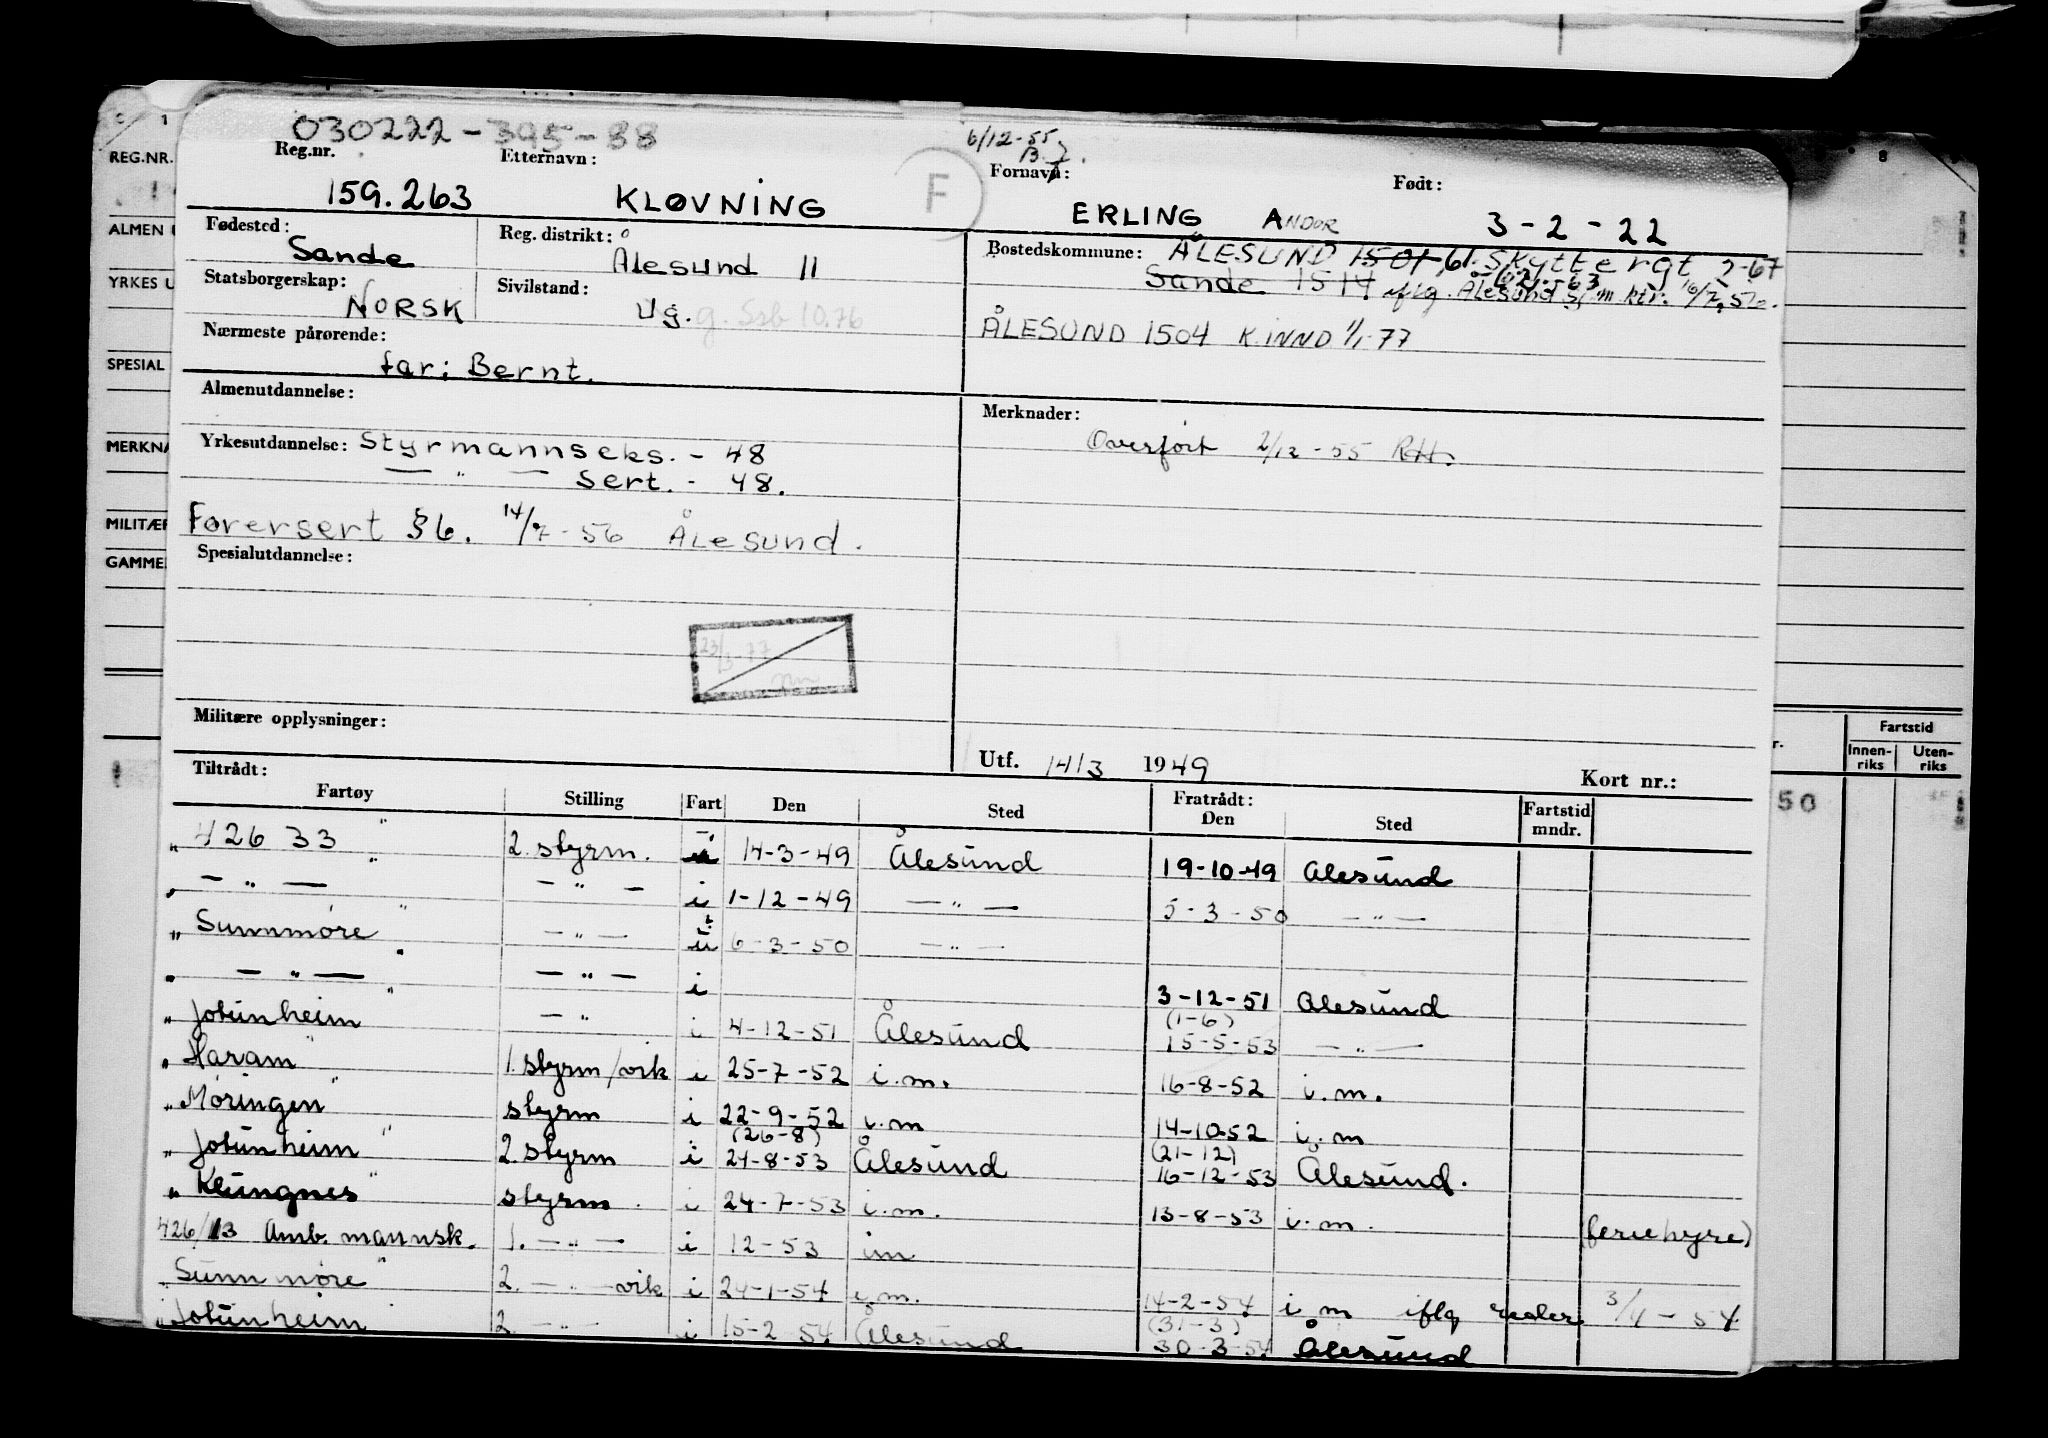 030222-395-38
6/12-55
Reg.nr. Etternavn: F Fornavn: Født:
159.263 KLØVNING ERLING ANDOR 3-2-22
Fødested: Sande Reg. distrikt: Ålesund 11 Bostedskommune: ÅLESUND 1501, 61. Skyttergt 2-67
Sande 1514 iflg. Ålesund
Statsborgerskap: NORSK Sivilstand: Ug. g. Ssb 10.76
ÅLESUND 1504 K.INND 1/1-77
Nærmeste pårørende:
far: Bernt.
Almenutdannelse: Merknader:
Overført 2/12-55 RH.
Yrkesutdannelse: Styrmannseks. - 48
— " — Sert. - 48.
Førersert §6. 14/7-56 Ålesund.
Spesialutdannelse:
Militære opplysninger:
Utf. 14/3 1949 Kort nr.:
Tiltrådt: Fratrådt:
Fartøy Stilling Fart Den Sted Den Sted Fartstid mndr.
" 426 33 " 2. styrm. 14-3-49 Ålesund 19-10-49 Ålesund
" — " — " — " — i 1-12-49 — " — 5-3-50 — " —
" Sunnmøre " — " — 6-3-50 — " —
" — " — " — " — i 3-12-51 Ålesund
(1-6)
" Jotunheim " — " i 4-12-51 Ålesund 15-5-53 — " —
" Haram " 1. styrm/vik i 25-7-52 i.m. 16-8-52 i.m.
" Møringen " styrm i 22-9-52 i.m 14-10-52 i.m
(26-8) (21-12)
" Jotunheim " 2 styrm i 24-8-53 Ålesund 16-12-53 Ålesund.
" Klungnes " styrm i 24-7-53 i.m. 13-8-53 i.m. (feriehyre)
426/13 Amb. mannsk. 1. — " — i 12-53 im
" Sunnmøre " 2. — " — vik i 24-1-54 i.m. 14-2-54 i m iflg reder 3/4-54
(31-3)
" Jotunheim 2. — " — i 15-2 54 Ålesund 30-3-54 Ålesund
REG.NR.
ALMEN
YRKES
SPESIAL
MERKNA
MILITÆR
GAMMEL
Fartstid
Innen-riks Uten-riks
50